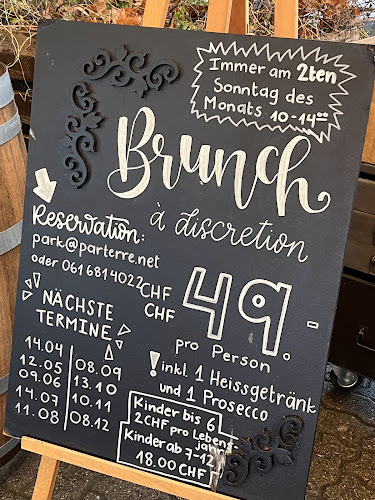 Immer am 2ten
Sonntag des
Monats 10-14⁰⁰
Brunch
à discretion
Reservation:
park@parterre.net
oder 061 681 4022
CHF
CHF
49.-
pro Person
! inkl. 1 Heissgetränk
und 1 Prosecco
NÄCHSTE
TERMINE
14.04
12.05 | 08.09
09.06 | 13.10
14.07 | 10.11
11.08 | 08.12
Kinder bis 6
2CHF pro Lebens-
jahr
Kinder ab 7-12
18.00 CHF